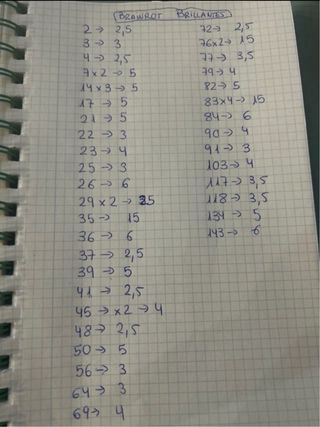 BRAWROT BRILLANTES
2 → 2,5
3 → 3
4 → 2,5
7 x 2 → 5
14 x 3 → 5
17 → 5
21 → 5
22 → 3
23 → 4
25 → 3
26 → 6
29 x 2 → 25
35 → 15
36 → 6
37 → 2,5
39 → 5
41 → 2,5
45 → x2 → 4
48 → 2,5
50 → 5
56 → 3
64 → 3
69 → 4
72 → 2,5
76x2 → 15
77 → 3,5
79 → 4
82 → 5
83x4 → 15
84 → 6
90 → 4
91 → 3
103 → 4
117 → 3,5
118 → 3,5
134 → 5
143 → 6